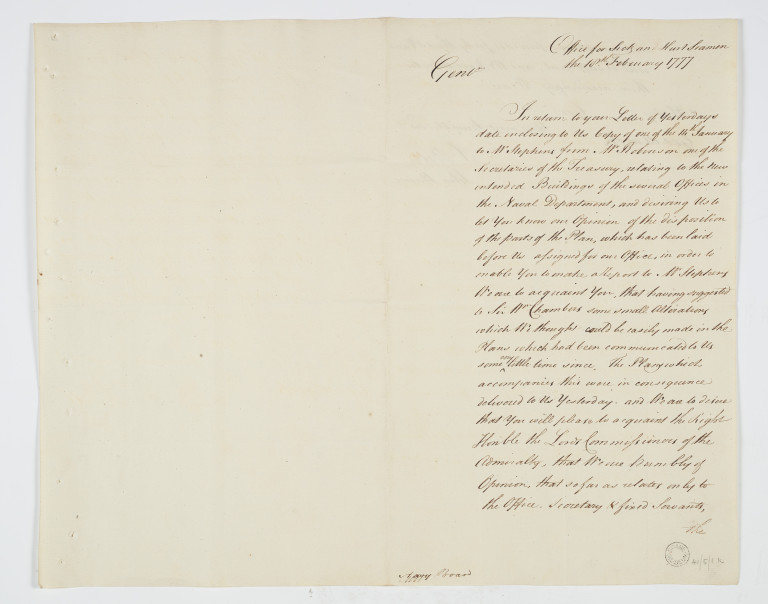 Office for Sick and Hurt Seamen
the 18th February 1777
Gentn
In return to your Letter of Yesterdays
date inclosing to Us Copy of one of the 14th January
to Mr Stephens from Mr Robinson one of the
Secretaries of the Treasury, relating to the New
intended Buildings of the several Offices in
the Naval Department, and desiring Us to
let You know our Opinion of the disposition
of the parts of the Plan, which has been laid
before Us assigned for our Office, in order to
enable You to make a Report to Mr Stephens,
We are to acquaint You, that having suggested
to Sir Wm Chambers some small Alterations
which We thought could be easily made in the
Plans which had been communicated to Us
some little time since, The Plans which
accompanies this were in consequence
delivered to Us Yesterday. and We are to desire
that You will please to acquaint the Right
Honble the Lords Commissioners of the
Admiralty, that We are Humbly of
Opinion, that so far as relates only to
the Office, Secretary & fixed Servants,
the
Navy Board
41/5/1.16